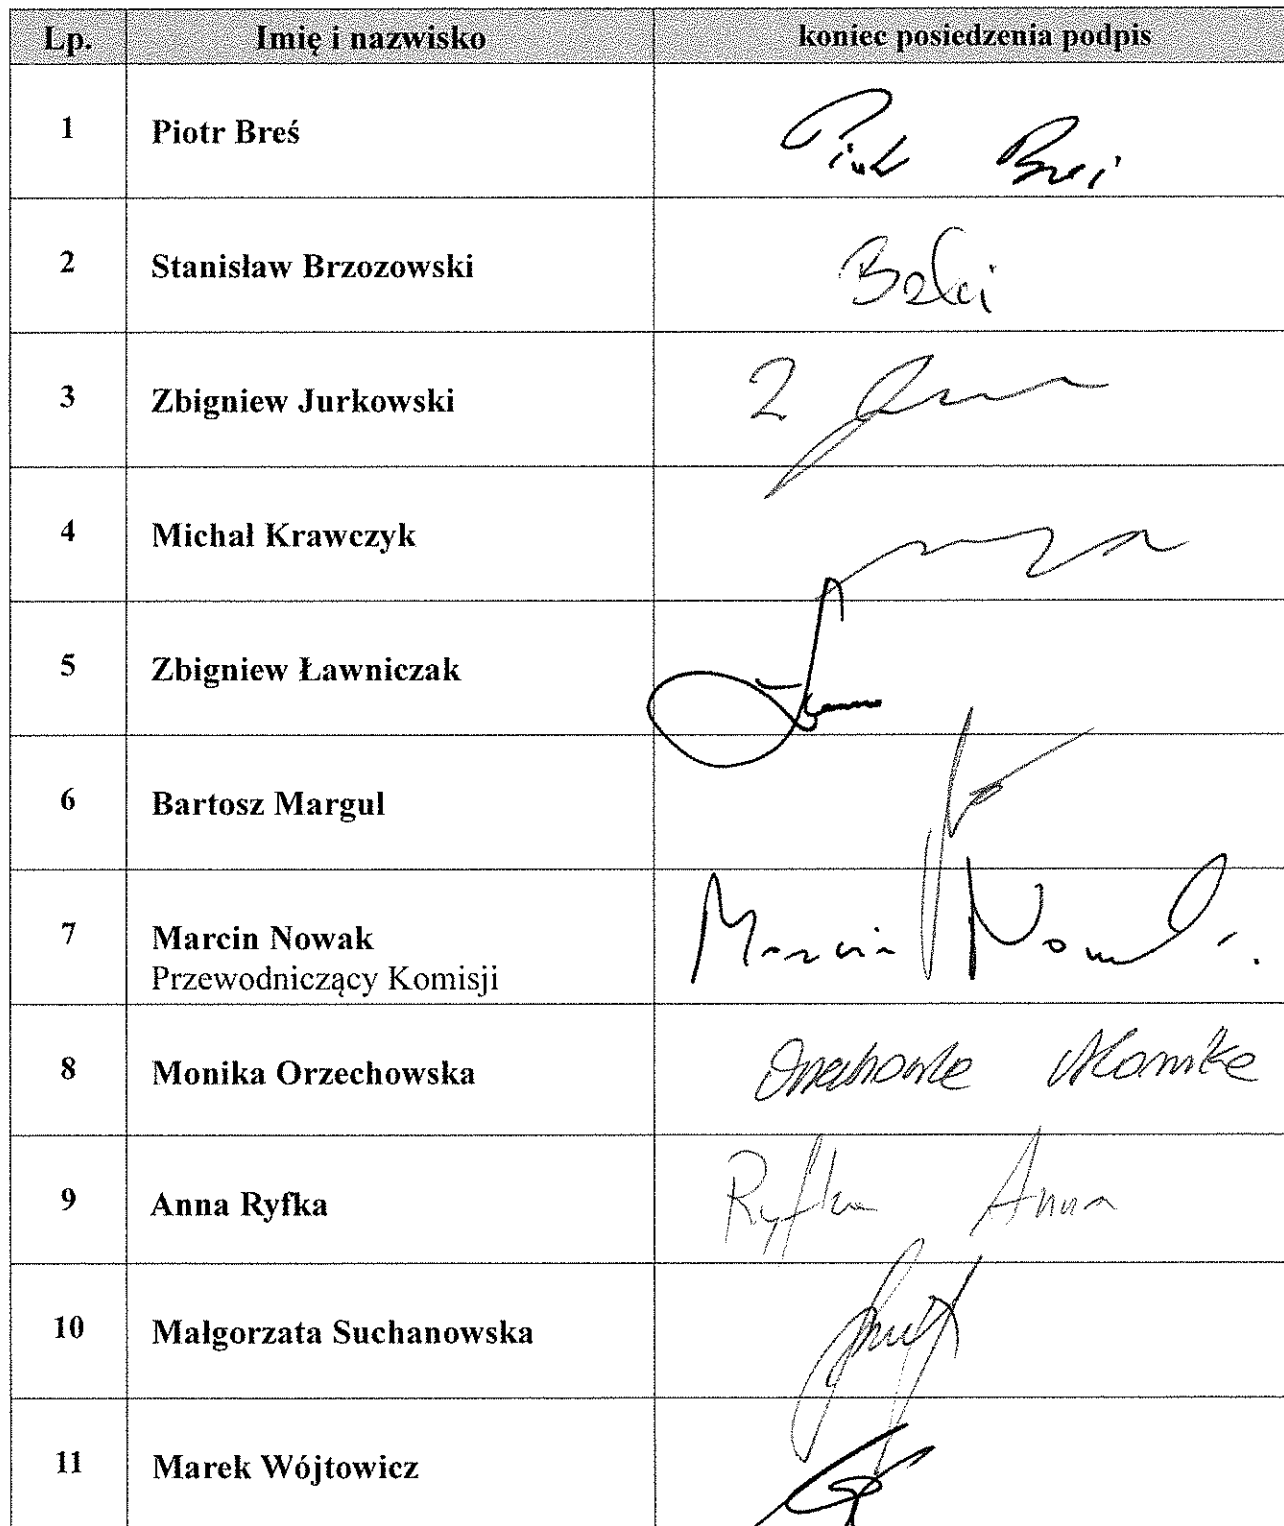 Lp. Imię i nazwisko koniec posiedzenia podpis
1 Piotr Breś Piotr Breś
2 Stanisław Brzozowski
3 Zbigniew Jurkowski
4 Michał Krawczyk
5 Zbigniew Ławniczak
6 Bartosz Margul
7 Marcin Nowak Marcin Nowak
Przewodniczący Komisji
8 Monika Orzechowska Orzechowska Monika
9 Anna Ryfka Ryfka Anna
10 Małgorzata Suchanowska
11 Marek Wójtowicz